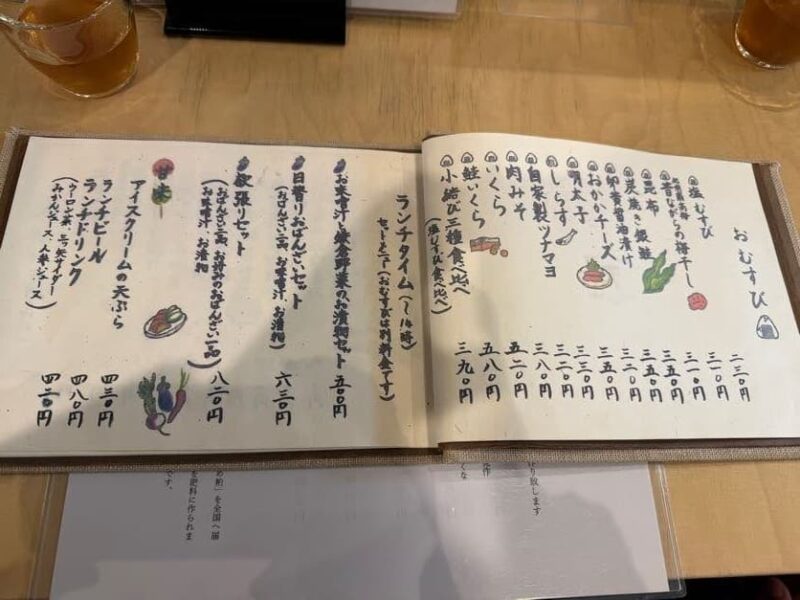 おむすび
塩むすび 二三〇円
昔ながらの梅干し 三一〇円
昆布 三一〇円
炭焼き銀鮭 三五〇円
卵黄醤油漬け 三五〇円
おかかチーズ 三二〇円
明太子 三五〇円
しらす 三三〇円
自家製ツナマヨ 三三〇円
肉みそ 三八〇円
いくら 五二〇円
鮭いくら 五八〇円
小結び三種食べ比べ 三九〇円
(塩むすび食べ比べ)
ランチタイム(〜14時)
セットメニュー(おむすびは別料金です)
お味噌汁と鎌倉野菜のお漬物セット 五〇〇円
日替りおばんざいセット 六三〇円
(おばんざい一品、お味噌汁、お漬物)
欲張りセット 八二〇円
(おばんざい一品、お好みのおばんざい一品
お味噌汁、お漬物)
甘味
アイスクリームの天ぷら 四三〇円
ランチビール 四八〇円
ランチドリンク 四二〇円
(ウーロン茶、三ツ矢サイダー
みかんジュース、人参ジュース)
り致します
作
くな
め粕」を全国へ届
肥料に作られま
です。